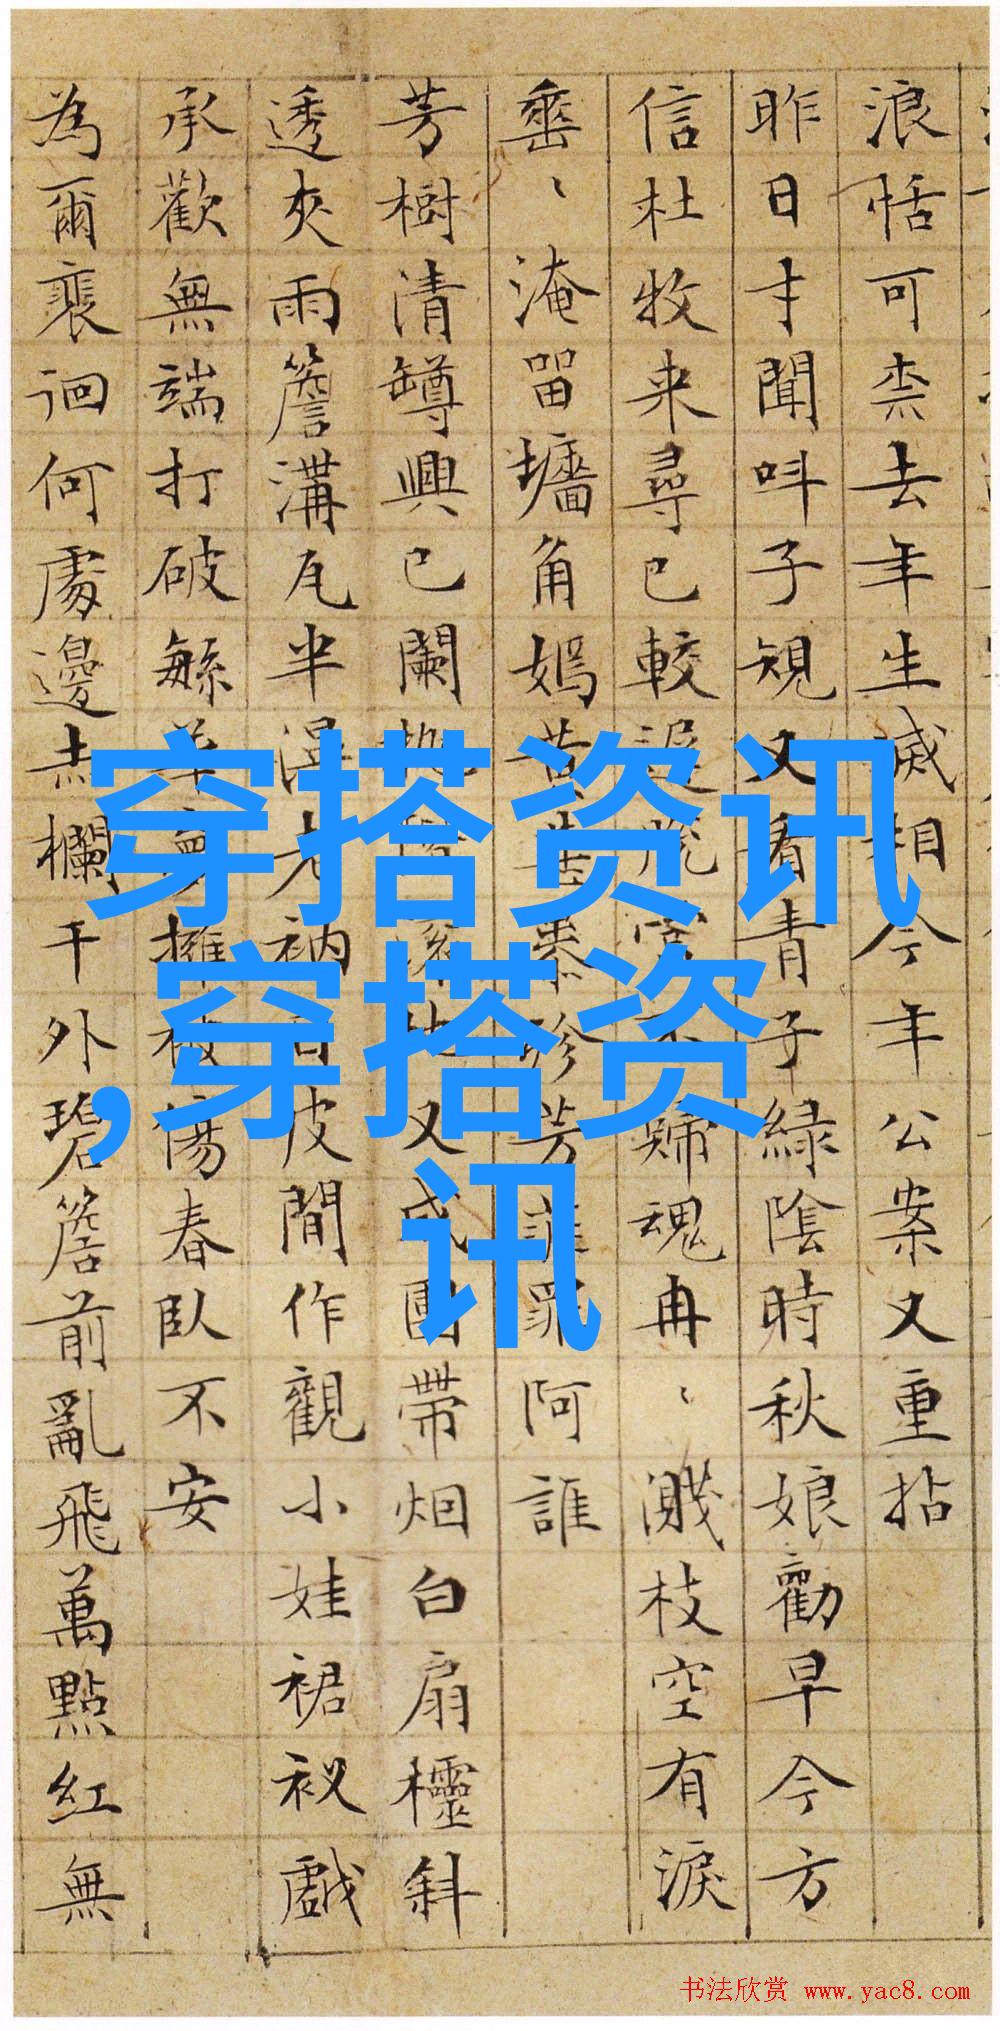 浪恬可柰去年生滅相今年公案又重拈
昨日才聞呌子規又看青子綠陰時秋娘勸早今方
信杜牧来尋已較遲歸魂冉、濺枝空有淚
垂、淹留墻角嫣苦珍芳罪阿誰
芳樹清罇興已闌又成團帶烟白扇欞斜
透夾雨簷溝瓦半濕老衲皮閒作觀小娃裙衩戲
承歡無端打破繁擁被傷春臥不安
為爾裵徊何處邊赤欄干外碧簷前亂飛萬點紅無
穿搭资讯
,穿搭资
讯
书法欣赏 www.yac8.com